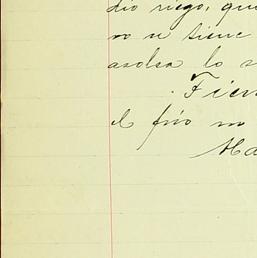 dio riego, que
no se tiene
asolea lo
Fier
el frio no
Ha